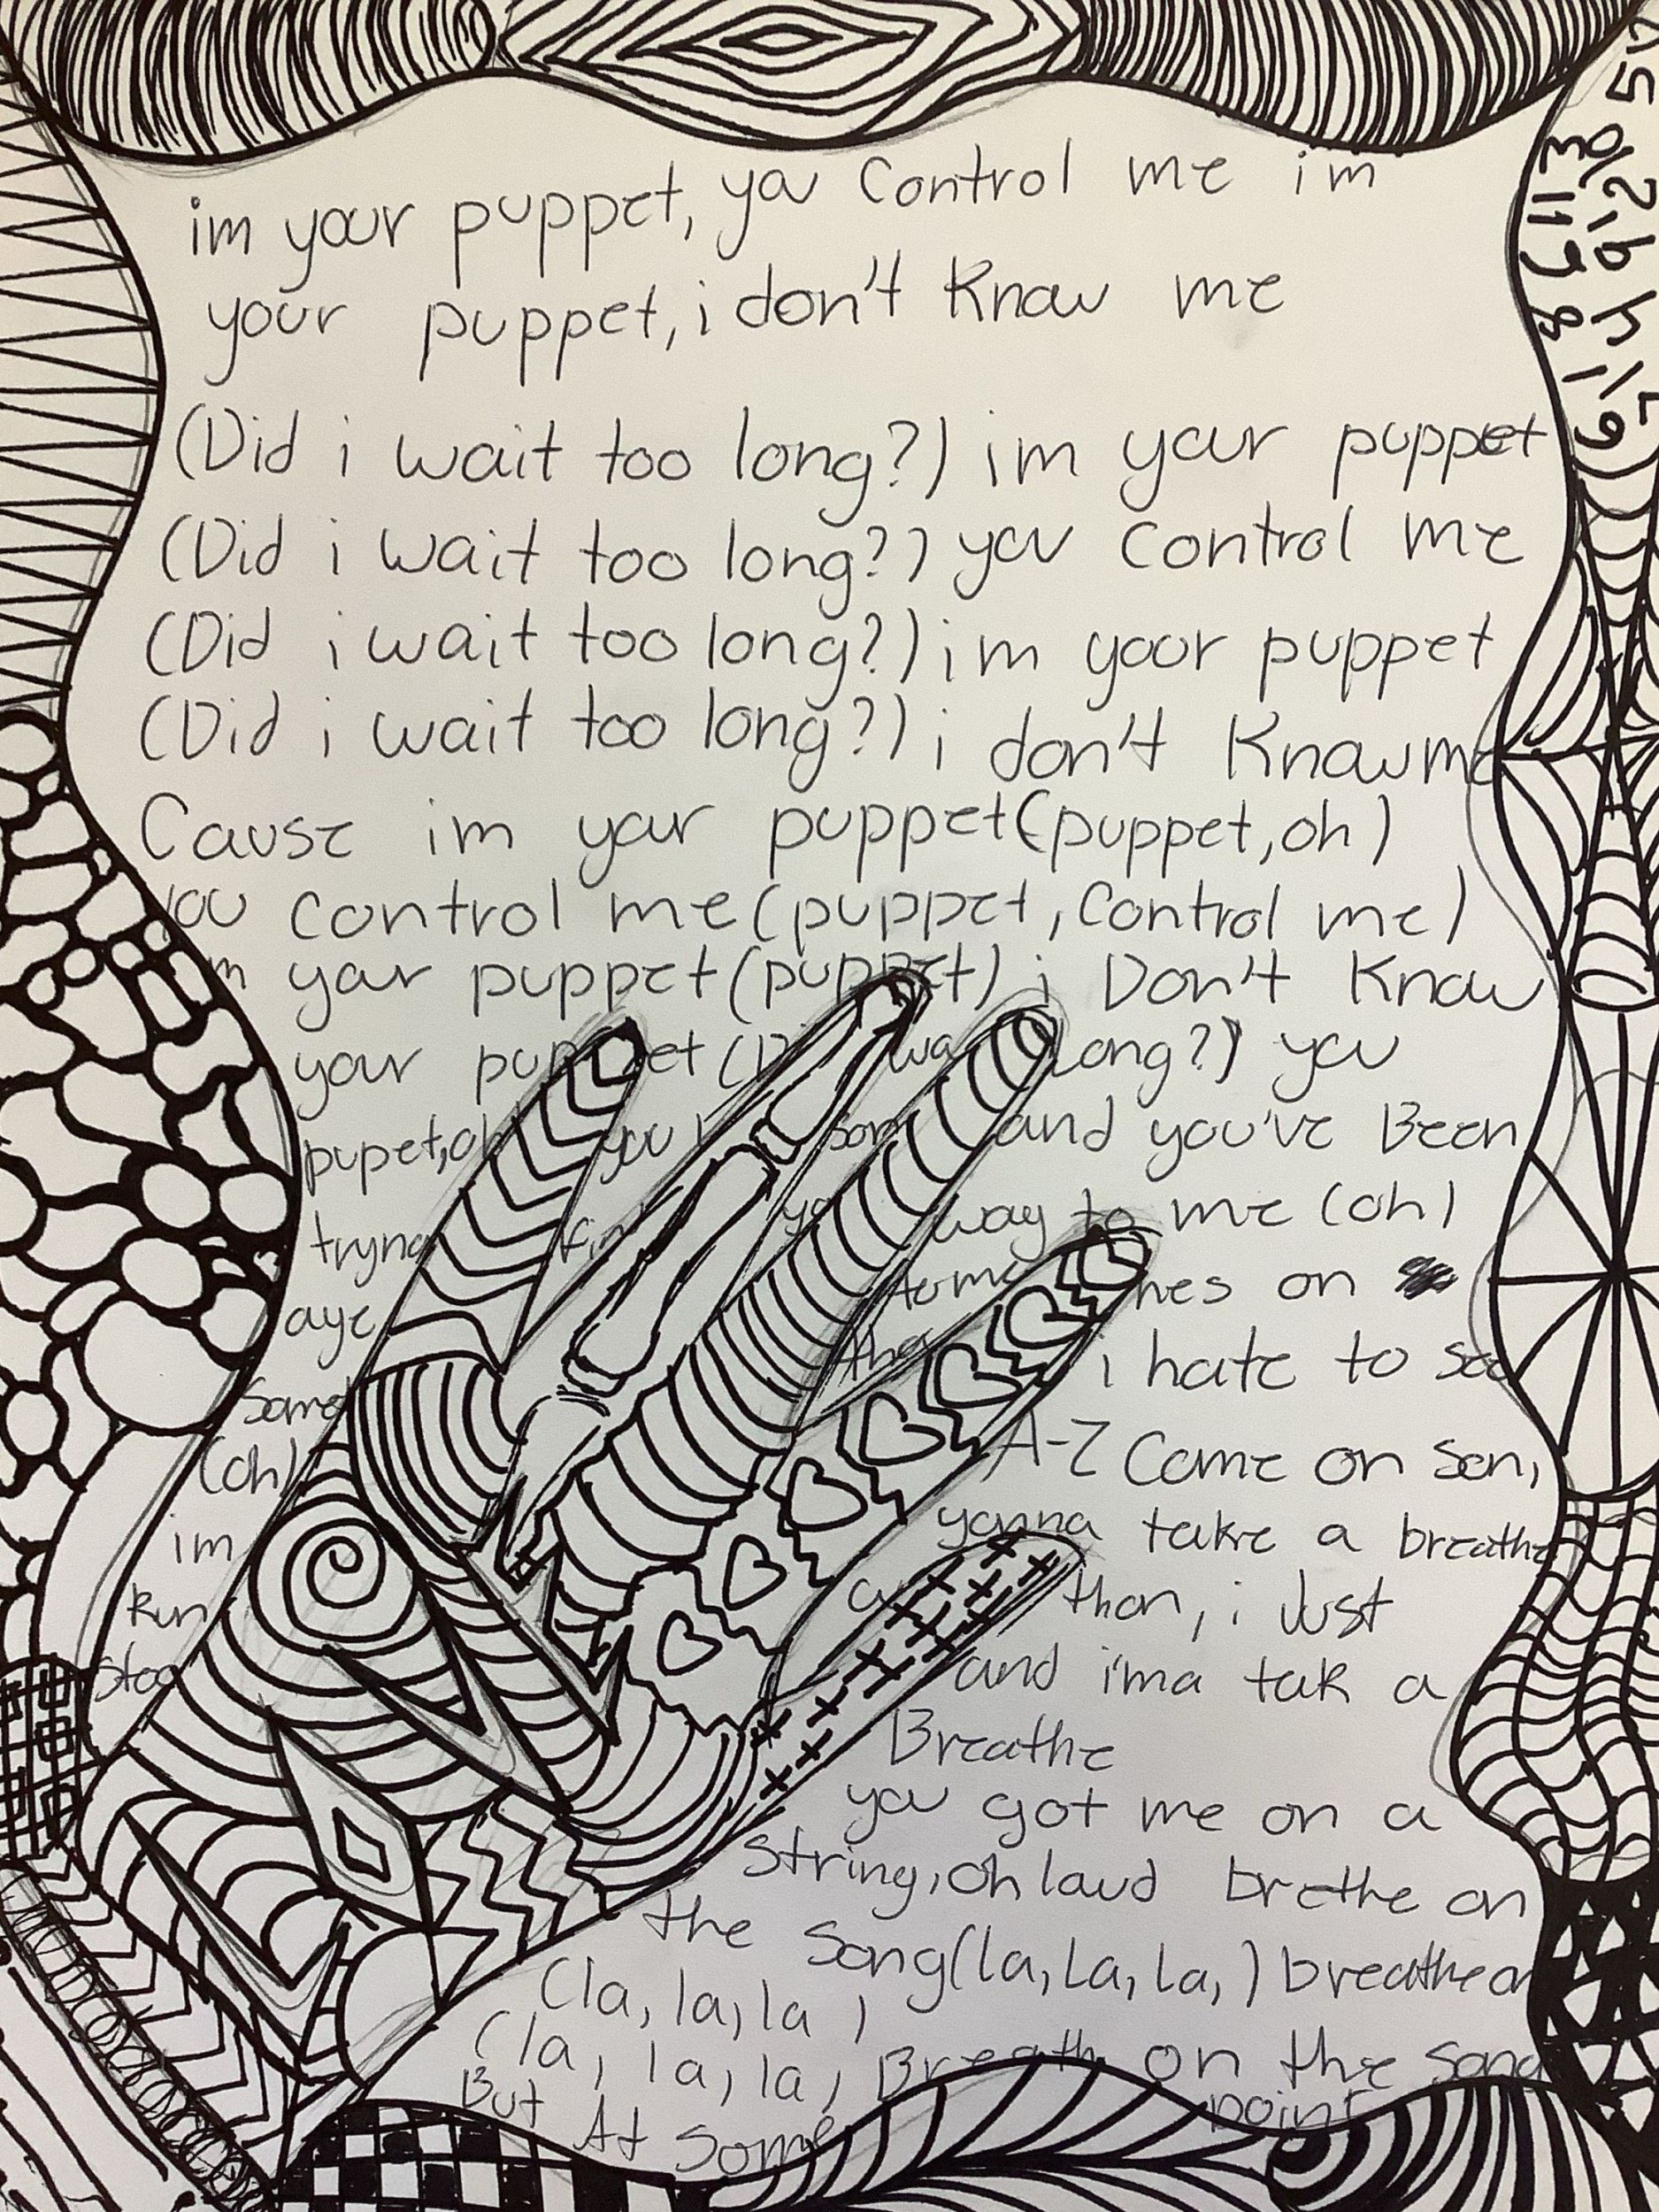 im your puppet, you Control me im
your puppet, i don't Know me
(Did i wait too long?) im your puppet
(Did i wait too long?) you Control me
(Did i wait too long?) im your puppet
(Did i wait too long?) i don't Know me
Cause im your puppet (puppet, oh)
you Control me (puppet, Control me)
im your puppet (puppet) i Don't Know
your puppet long?) you
pupet, oh you and you've Been
tryna way to me (oh)
aye on
Some the i hate to see
(oh) A-Z Come on son,
im gonna take a breathe
Run than, i Just
stop and i'ma tak a
Breathe
you got me on a
string, oh laud brethe on
the song (la, La, la,) breathe on
(la, la, la,
(la, la, la, Breath on the song
But At Some point